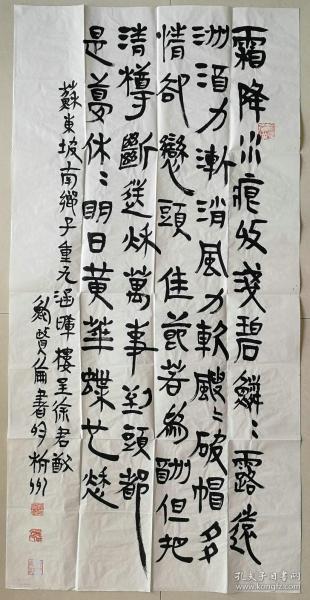 霜降水痕收淺碧鱗〻露遠
洲酒力漸消風力軟颼〻破帽多
情卻戀頭 佳節若為酬但把
清樽斷送秋萬事到頭都
是夢休〻明日黃華蝶也愁
蘇東坡南鄉子重九涵暉樓呈徐君猷
書於杭州
孔夫子旧书网